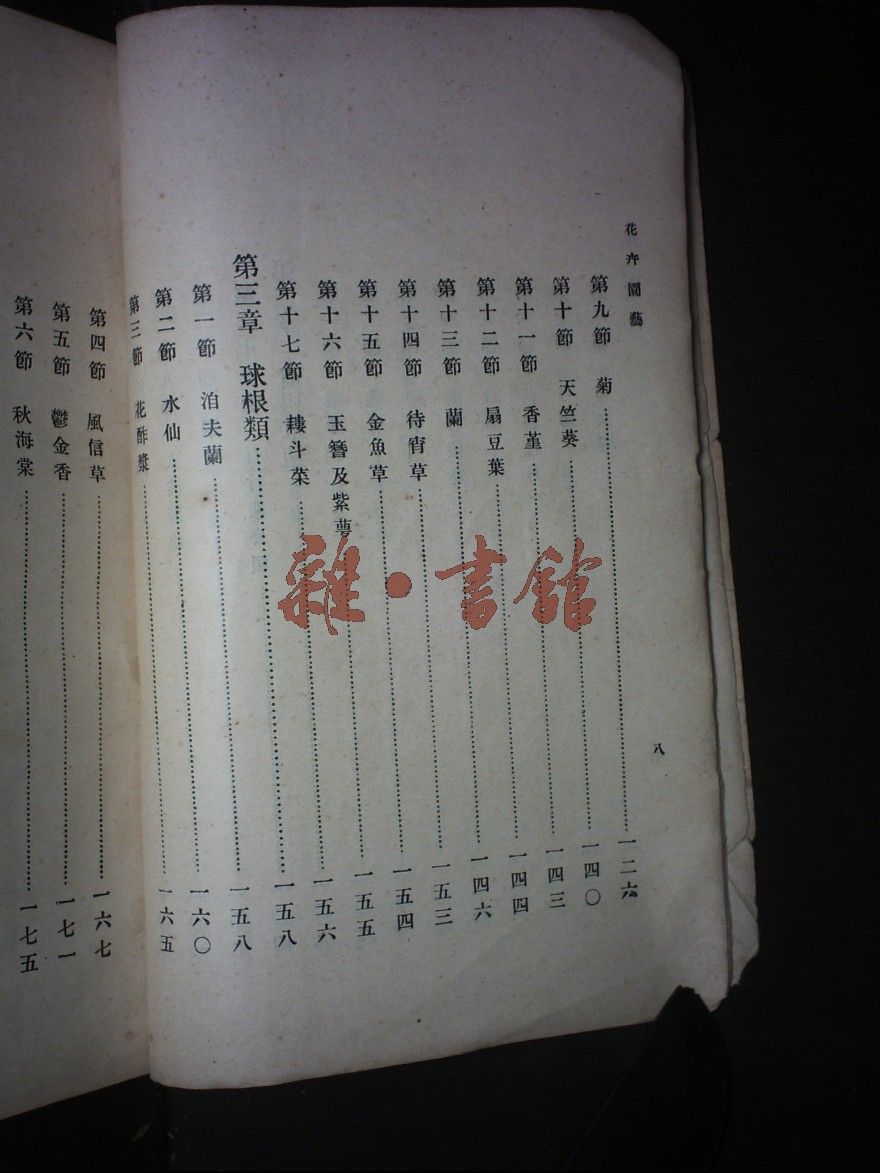 花卉園藝
八
第九節 菊……一二六
第十節 天竺葵……一四〇
第十一節 香堇……一四三
第十二節 扇豆葉……一四四
第十三節 蘭……一四六
第十四節 待宵草……一五三
第十五節 金魚草……一五四
第十六節 玉簪及紫萼……一五五
第十七節 耬斗菜……一五六
第三章 球根類……一五八
第一節 泊夫蘭……一五八
第二節 水仙……一六〇
第三節 花酢漿……一六五
第四節 風信草……一六七
第五節 鬱金香……一七一
第六節 秋海棠……一七五
雜·書館